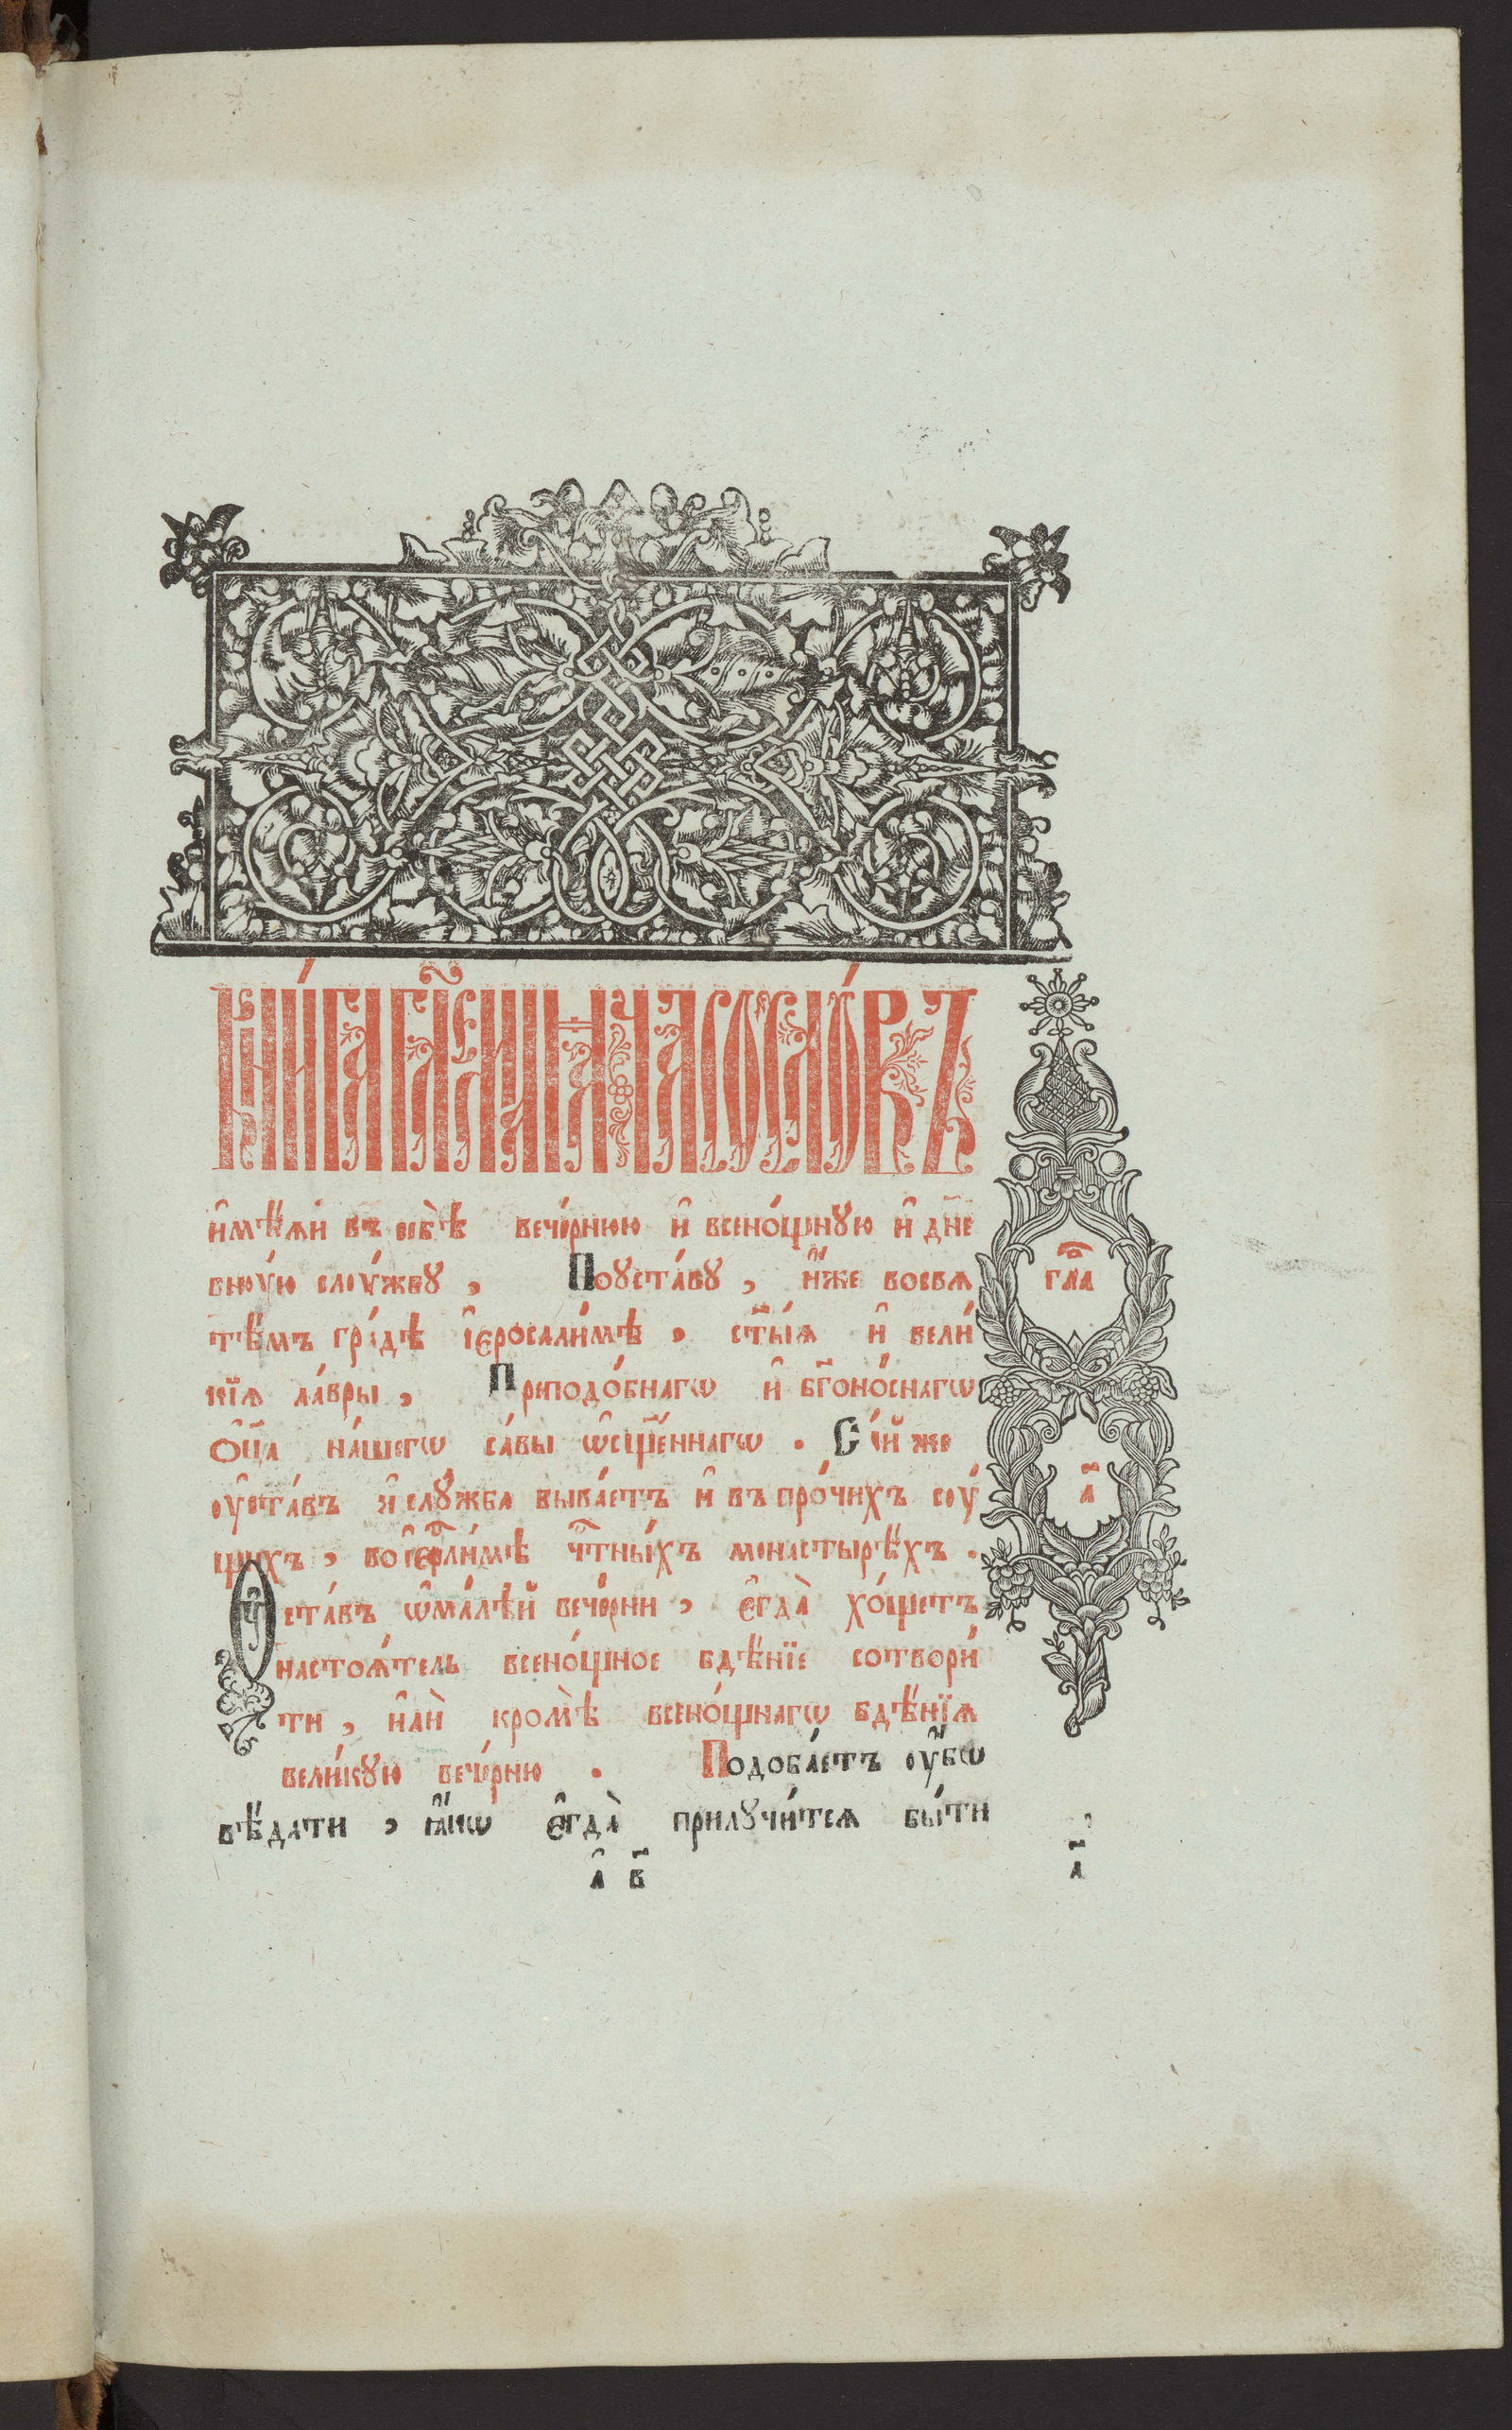 Кни́га гл҃емая часосло́въ
и҆мѣ́ѧй въ себѣ̀ вече́рнюю и҆ всено́щнꙋю и҆ дн҃е
вноу́ю слоу́жбꙋ, Поуста́вꙋ, и҆́же восвѧ
тѣ́мъ гра́дѣ і҆єросали́мѣ, ст҃ы́ѧ и҆ вели́
кїѧ ла́вры, Преподо́бнагѡ и҆ бг҃оно́снагѡ
ѻ҆ц҃а̀ на́шегѡ са́вы ѡ҆сщ҃е́ннагѡ. Се́й же
оу҆ста́въ и҆ слꙋ́жба быва́етъ и҆ въ про́чихъ соу́
щихъ, во і҆єрⷭ҇ли́мѣ чⷭ҇тны́хъ монастырѣ́хъ.
Оу҆ста́въ ѡ҆ма́лѣй вече́рни, є҆гда̀ хо́щетъ
настоѧ́тель всено́щное бдѣ́нїе сотвори́
ти, и҆лѝ кромѣ̀ всено́щнагѡ бдѣ́нїѧ
вели́кꙋю вече́рню. Подоба́етъ оу҆́бѡ
вѣ́дати, ꙗ҆́кѡ є҆гда̀ прилꙋчи́тсѧ бы́ти
глⷡ҇а
а҃
а҆ в҃
а҃